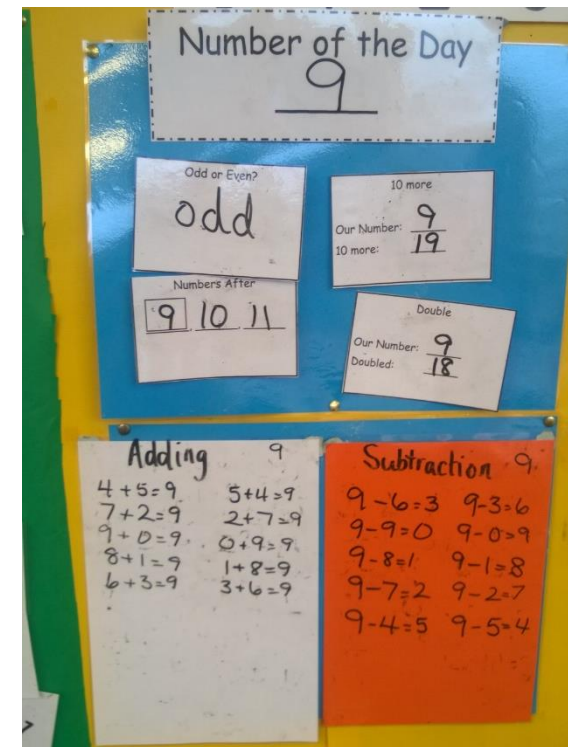 Number of the Day
9
Odd or Even?
odd
10 more
Our Number: 9
10 more: 19
Numbers After
9 10 11
Double
Our Number: 9
Doubled: 18
Adding 9
4+5=9 5+4=9
7+2=9 2+7=9
9+0=9. 0+9=9
8+1=9 1+8=9
6+3=9 3+6=9
Subtraction 9.
9-6=3 9-3=6
9-9=0 9-0=9
9-8=1 9-1=8
9-7=2 9-2=7
9-4=5 9-5=4